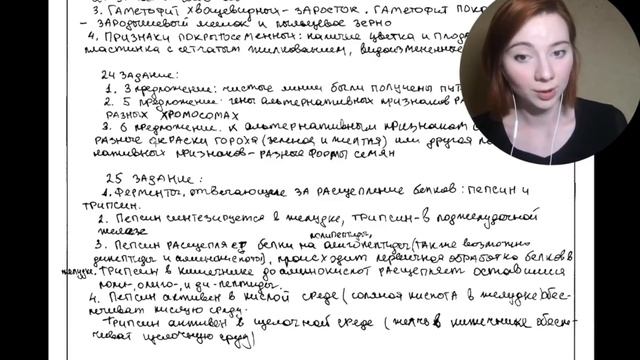 3. Гаметофит хвощевидных - заросток. Гаметофит пок
- зародышевый мешок и пыльцевое зерно
4. Признаки покрытосеменных: наличие цветка и плод
пластинка с сетчатым жилкованием, видоизменённые
24 задание:
1. 3 предложение: чистые линии были получены пут
2. 5 предложение гены альтернативных признаков ра
разных хромосомах
3. 6 предложение. К альтернативным признакам о
разные окраски гороха (зелёная и жёлтая) или другая па
нативных признаков - разные формы семян
25 задание:
1. Ферменты, отвечающие за расщепление белков: пепсин и
трипсин.
2. Пепсин синтезируется в желудке, трипсин - в поджелудочной
железе
полипептиды,
3. Пепсин расщепляет белки на олигопептиды (также возможно
дипептиды и аминокислоты), происходит первичная обработка белков в
желудке. Трипсин в кишечнике до аминокислот расщепляет оставшиеся
поли-, олиго-, и ди-пептиды.
4. Пепсин активен в кислой среде (соляная кислота в желудке) обес-
печивает кислую среду.
Трипсин активен в щелочной среде (желчь в кишечнике обеспе-
чивает щелочную среду)